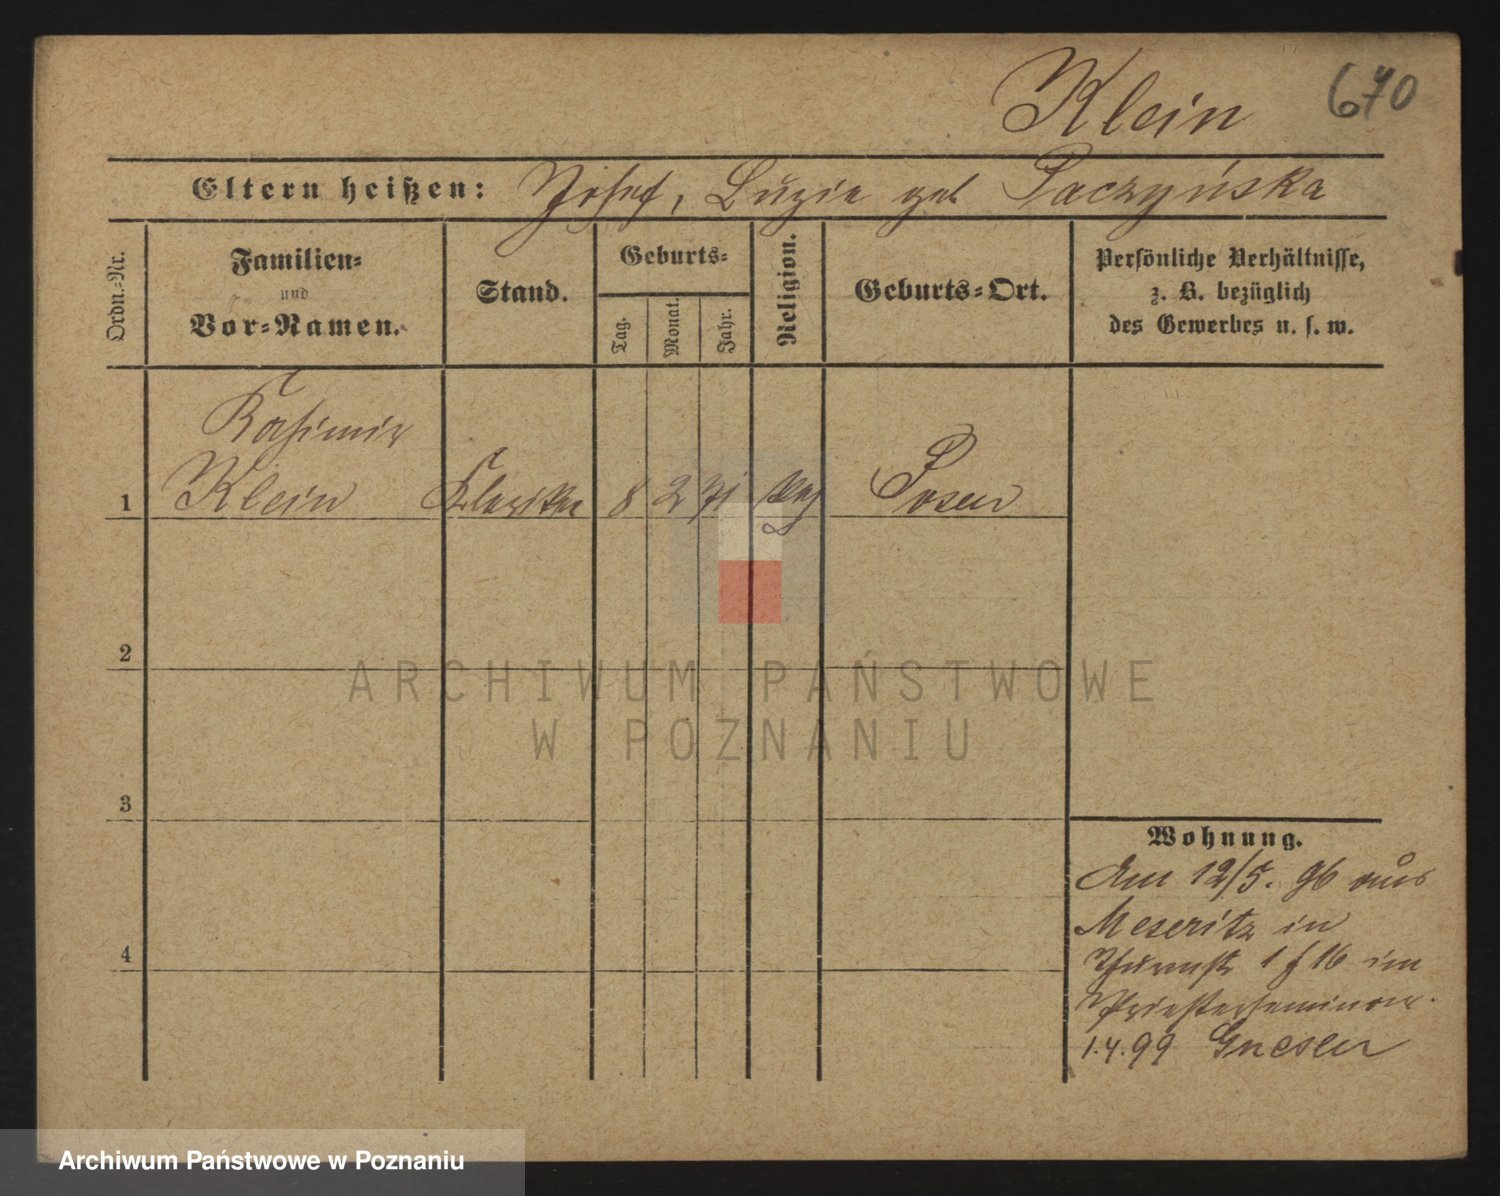 Klein 670
Eltern heißen: Josef, Luzie geb Paczyńska
Ordn.-Nr.
Familien-
und
Vor-Namen.
Stand.
Geburts-
Tag.
Monat.
Jahr.
Religion.
Geburts-Ort.
Persönliche Verhältnisse,
z. B. bezüglich
des Gewerbes u. s. w.
Kasimir
1 Klein Kleriker 8 2 71 Posen
2
3
4
Wohnung.
Am 12/5. 96 aus
Meseritz in
1 f 16 im
Priesterseminar.
1.4.99 Gnesen
ARCHIWUM PAŃSTWOWE
W POZNANIU
Archiwum Państwowe w Poznaniu